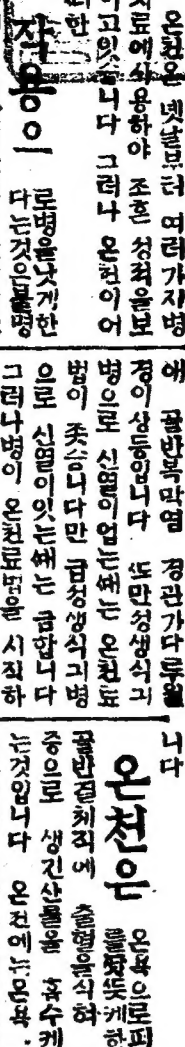 온천은 녯날부터 여러가지병
치료에사용하야 조흔 성적을보
이고잇습니다 그러나 온천이어
한
작용으
로병을낫게한
다는것은
애 골반복막염 경관가다루
경이상등입니다 또만성생식긔
병으로 신열이업는때는 온천료
법이 좃습니다만 급성생식긔병
으로 신열이잇는때는 금합니다
그러나병이 온천료법을 시작하
니다
온천은
온욕으로피
골반결체직에 출혈을식혀
증으로 생긴산물을 흡수케
는것입니다 온천에는온욕.